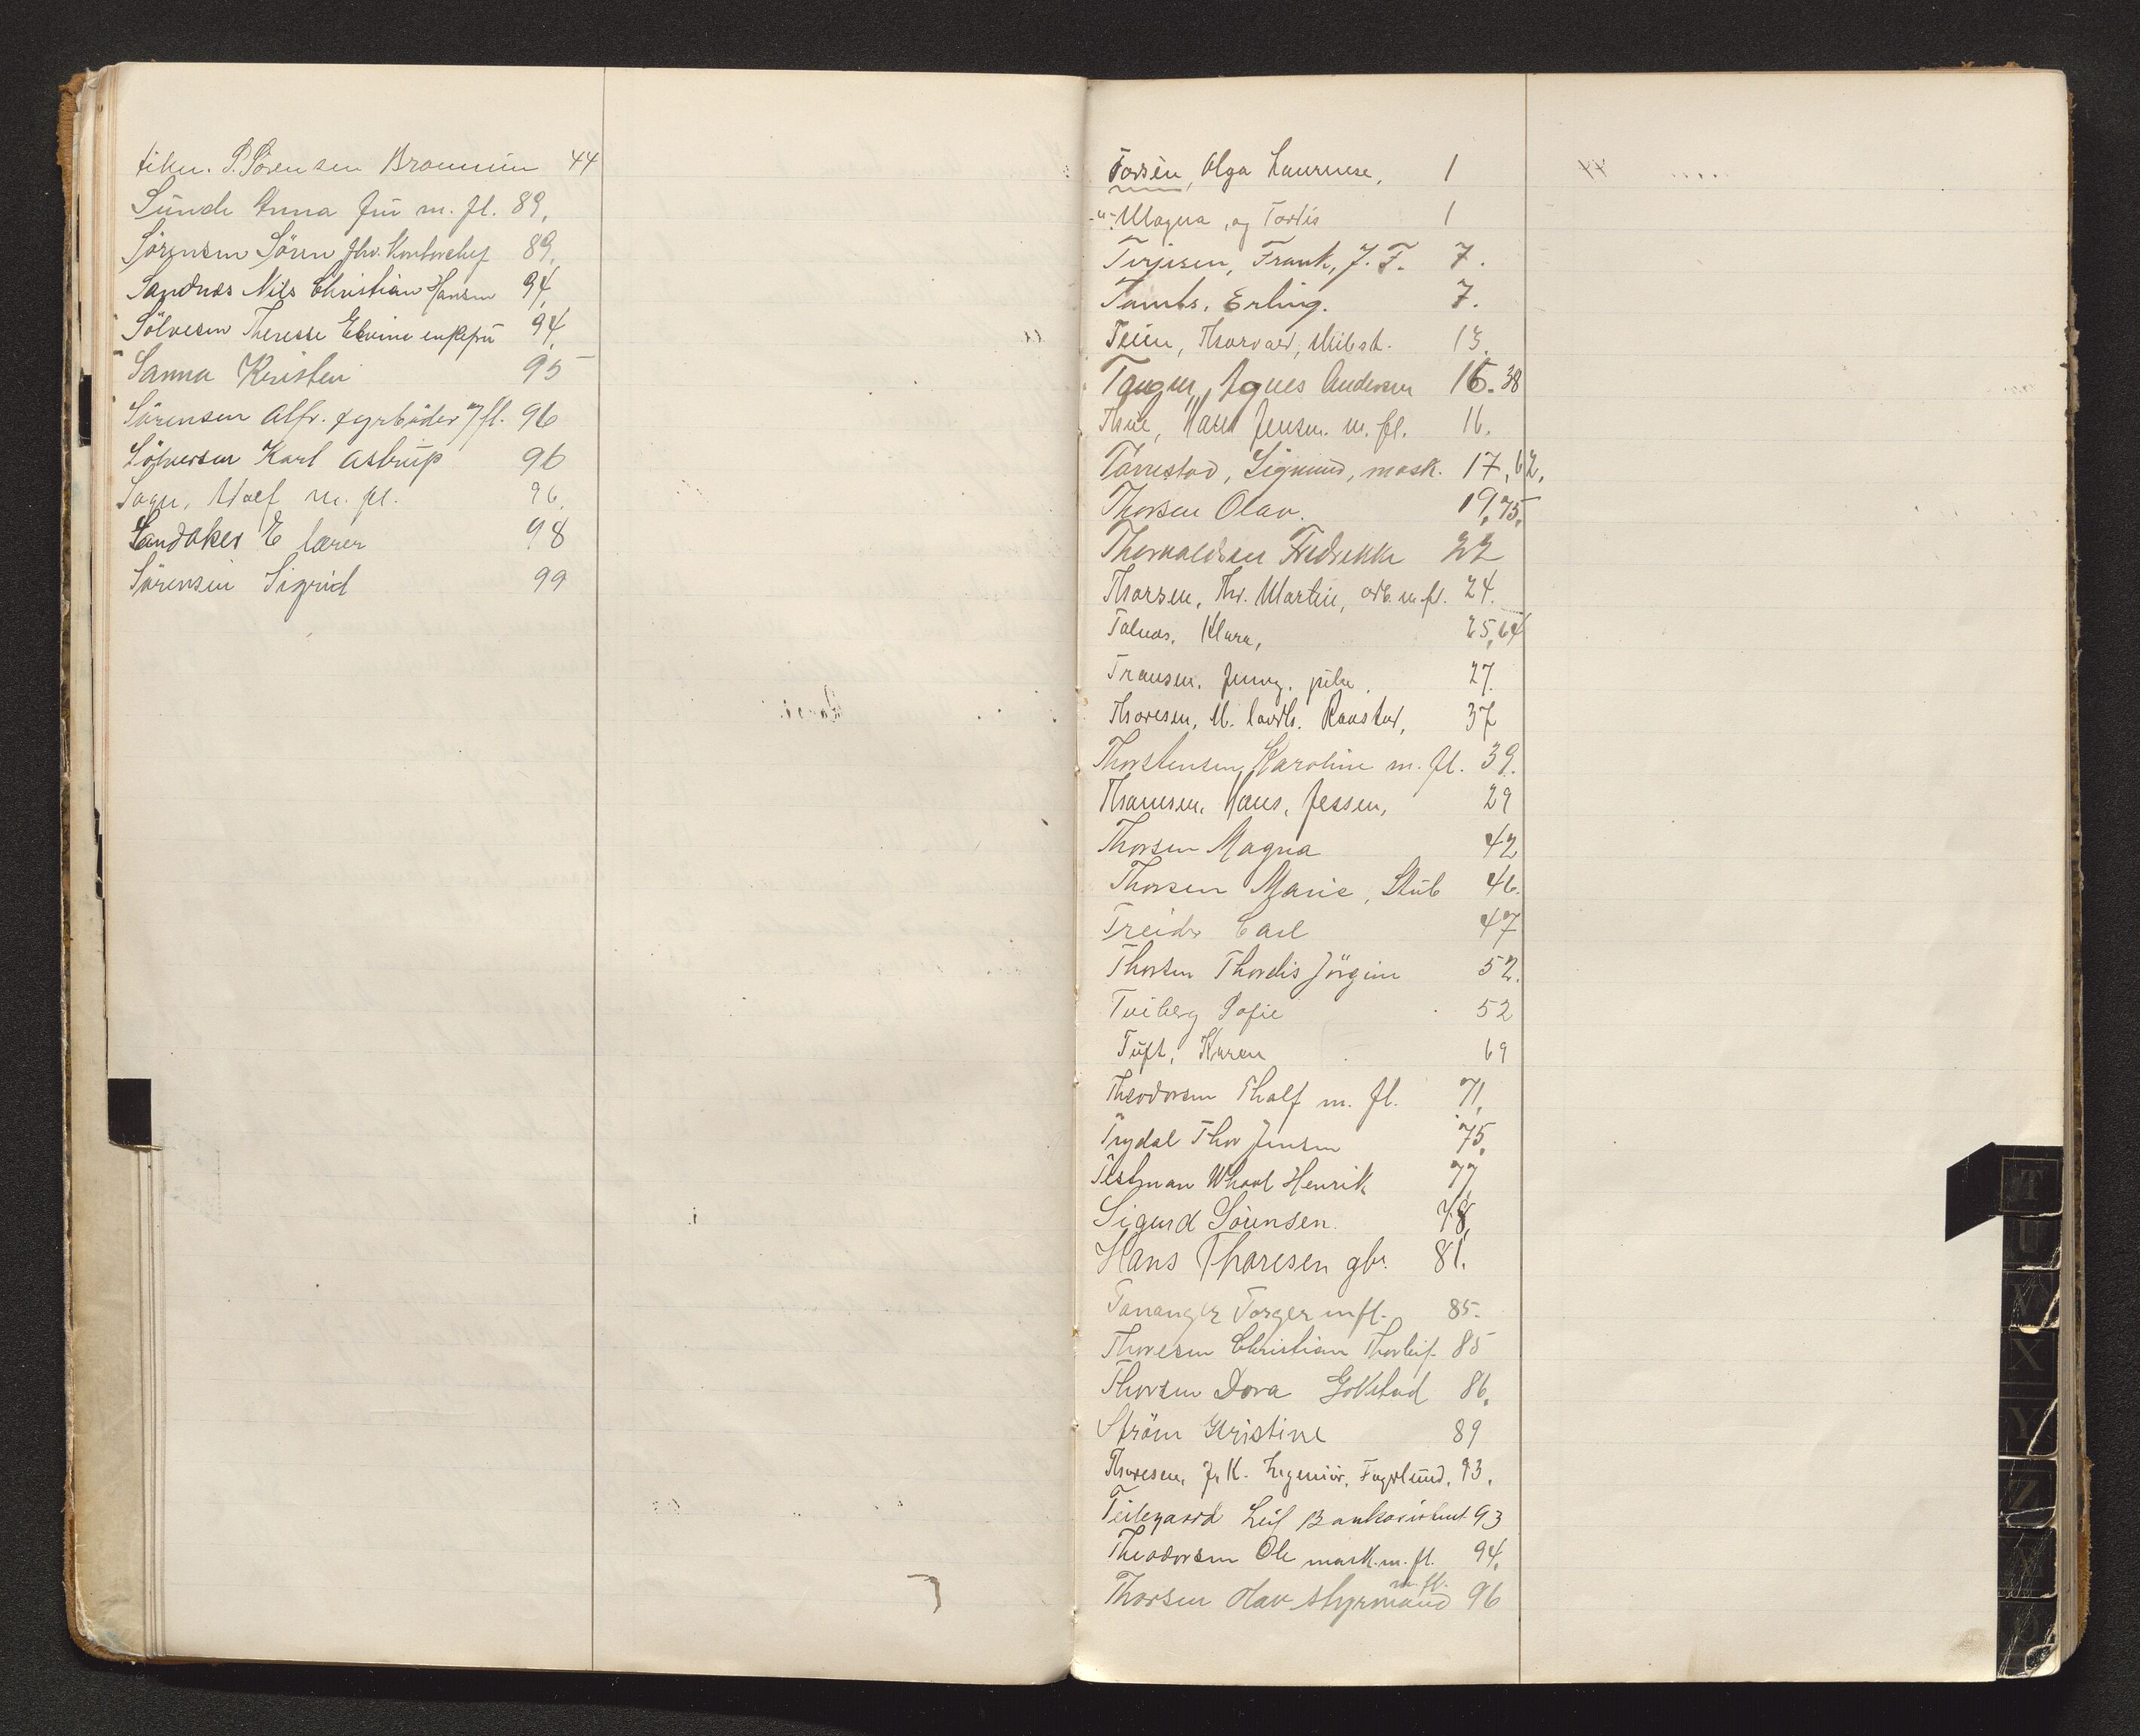 S. Sörensen 44
Sunde Anna fru m. fl. 89,
Sörensen Sören fhv. Kontorchef 89,
Sandnæs Nils Christian Hansen 94,
Sölvesen Therese Elvine enkefru 94,
Sanna Kristen 95
Sörensen Alfr. fyrböder m fl. 96
Sölversen Karl Astrup 96
Sagen, m. fl. 96,
Sandaker E lærer 98
Sörensen Sigrid 99
Olga Laurense, 1
-"- Magna, og Tordis 1
Terjesen, Frank, J. F. 7.
Tambs, Erling. 7.
Teien, Thorvald, 13.
Tangen, Agnes Andersen 16. 38
Thue, Hans Jensen m. fl. 16.
Tönnestad, Sigmund, mask. 17, 62,
Thorsen Olav. 19, 75,
Thorvaldsen Fredrikke 22
Thorsen, Th. Martin, arb. m. fl. 24.
Talnæs, Klara, 25, 64
Transen, 27.
Thoresen, M. Raastad, 37
Thorstensen, Karoline m. fl. 39.
Thomsen, Hans, Jessen, 29
Thorsen Magna 42
Thorsen Marie, Stub 46.
Treider Carl 47
Thorsen Thordis Jörgine 52.
Tveiberg Sofie 52
Tuft, Karen 69
Theodorsen Thalf m. fl. 71,
Trydal Thor Jensen 75,
Testman Henrik 77,
Sigurd Sörensen. 78,
Hans Thoresen gbr. 81.
Tananger Torger mfl. 85.
Thoresen Christian Thorleif 85
Thorsen Dora Gokstad 86.
Ström Kristine 89
Thoresen, J. K. Ingeniör, Fagerlund, 93.
Teilegaard Leif Bankassistent 93
Theodorsen Ole mask. m. fl. 94,
Thorsen Olav styrmand m. fl. 96
T
U
V
X
Y
Z